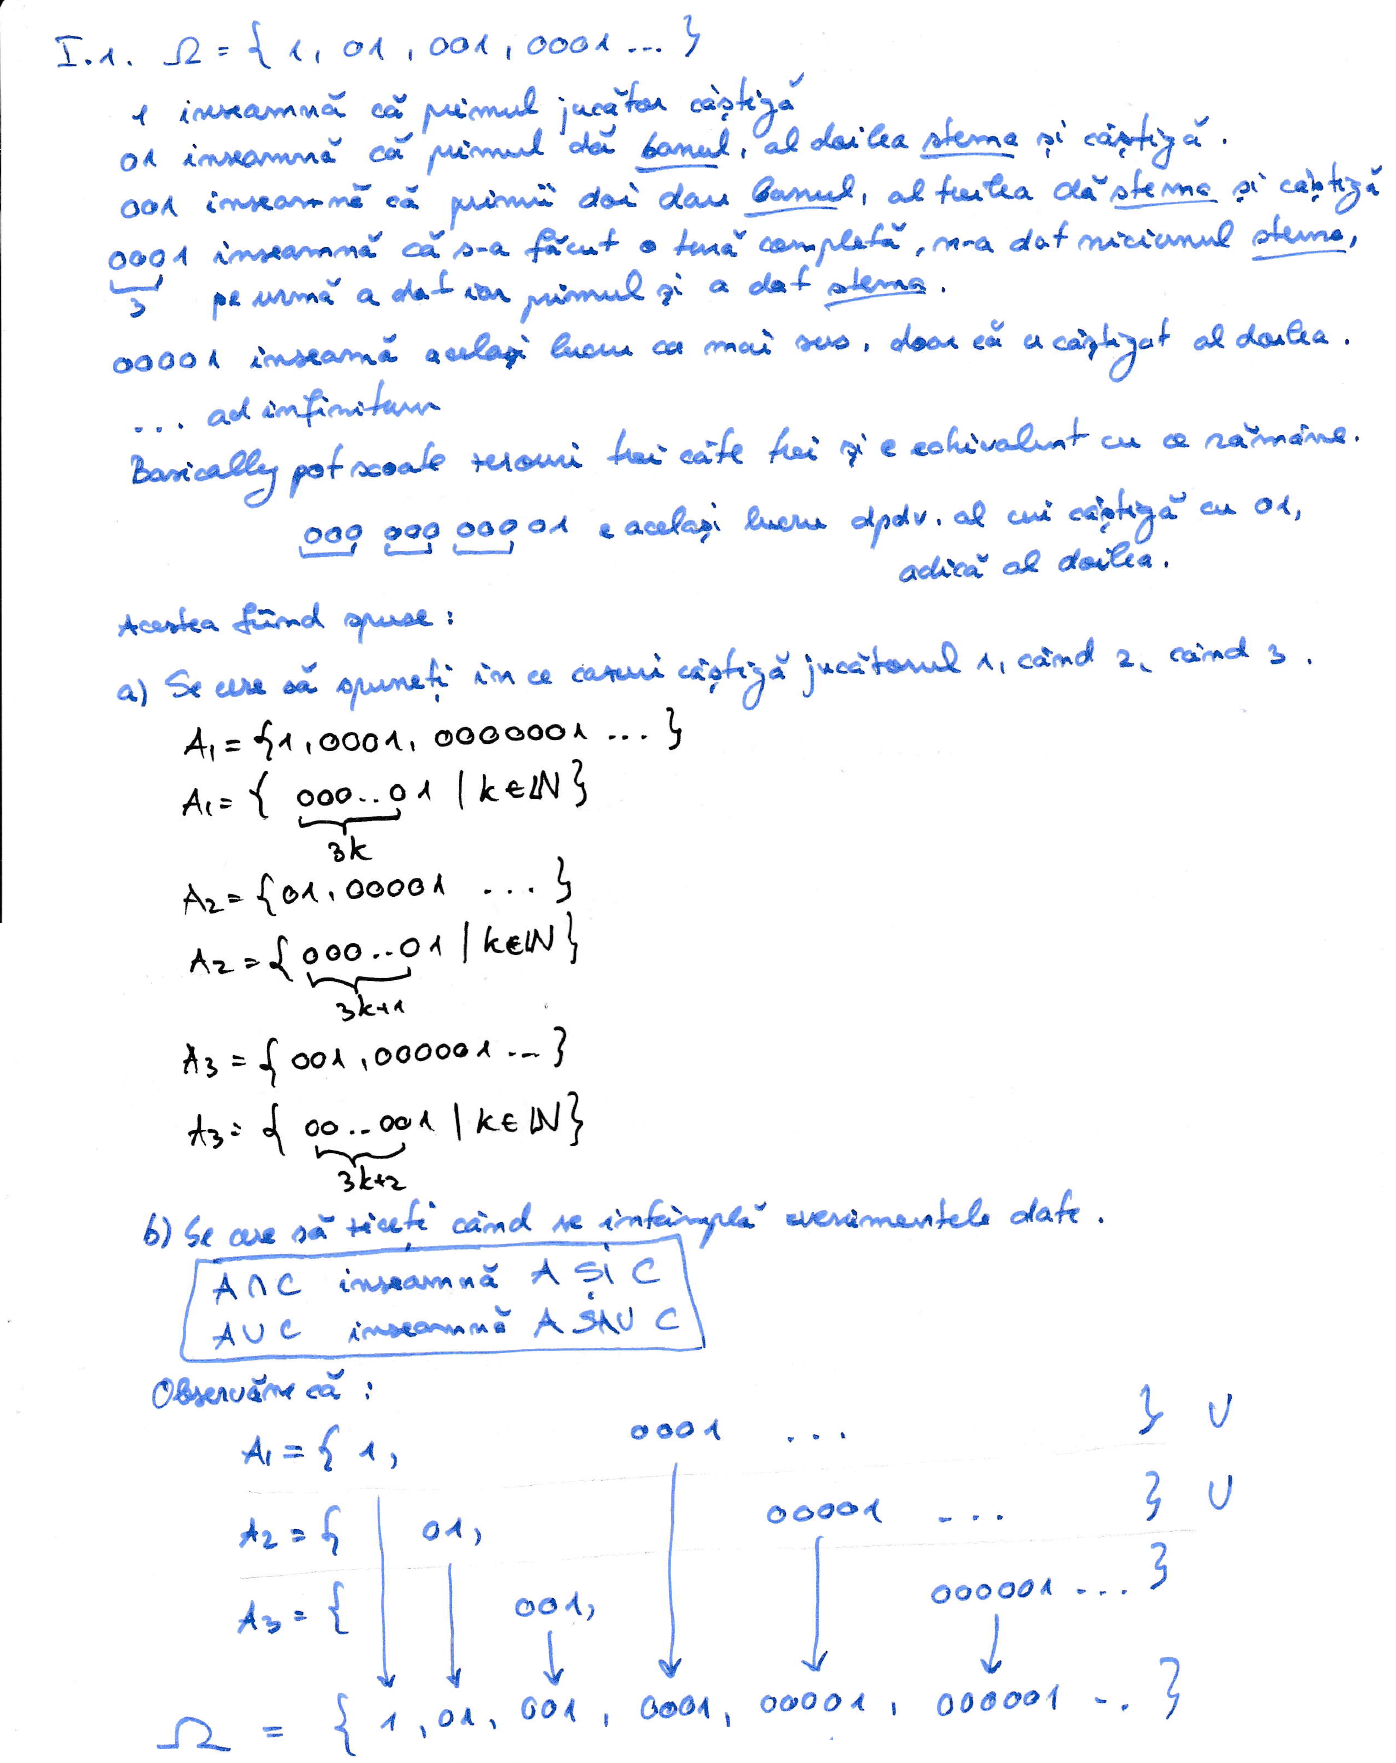 I.1. Ω = { 1, 01, 001, 0001 ... }
1 inseamnă că primul jucător câștigă
01 inseamnă că primul dă banul, al doilea stema și câștigă.
001 inseamnă că primii doi dau banul, al treilea dă stema și câștigă
0001 inseamnă că s-a făcut o tură completă, n-a dat niciunul stema,
3 pe urmă a dat iar primul și a dat stema.
00001 inseamă același lucru ca mai sus, doar că a câștigat al doilea.
... ad infinitum
Basically pot scoate zerouri trei câte trei și e echivalent cu ce rămâne.
000 000 000 01 e același lucru dpdv. al cui câștigă cu 01,
adică al doilea.
Acestea fiind spuse :
a) Se cere să spuneți in ce cazuri câștigă jucătorul 1, când 2, când 3 .
A1 = {1, 0001, 0000001 ... }
A1 = { 000..0 1 | k ∈ ℕ }
3k
A2 = { 01, 00001 ... }
A2 = { 000..0 1 | k ∈ ℕ }
3k+1
A3 = { 001, 000001 ... }
A3 = { 00..00 1 | k ∈ ℕ }
3k+2
b) Se cere să ziceți când se intâmplă evenimentele date .
A ∩ C inseamnă A ȘI C
A ∪ C inseamnă A SAU C
Observăm că :
A1 = { 1, 0001 ... } ∪
A2 = { 01, 00001 ... } ∪
A3 = { 001, 000001 ... }
Ω = { 1, 01, 001, 0001, 00001, 000001 ... }